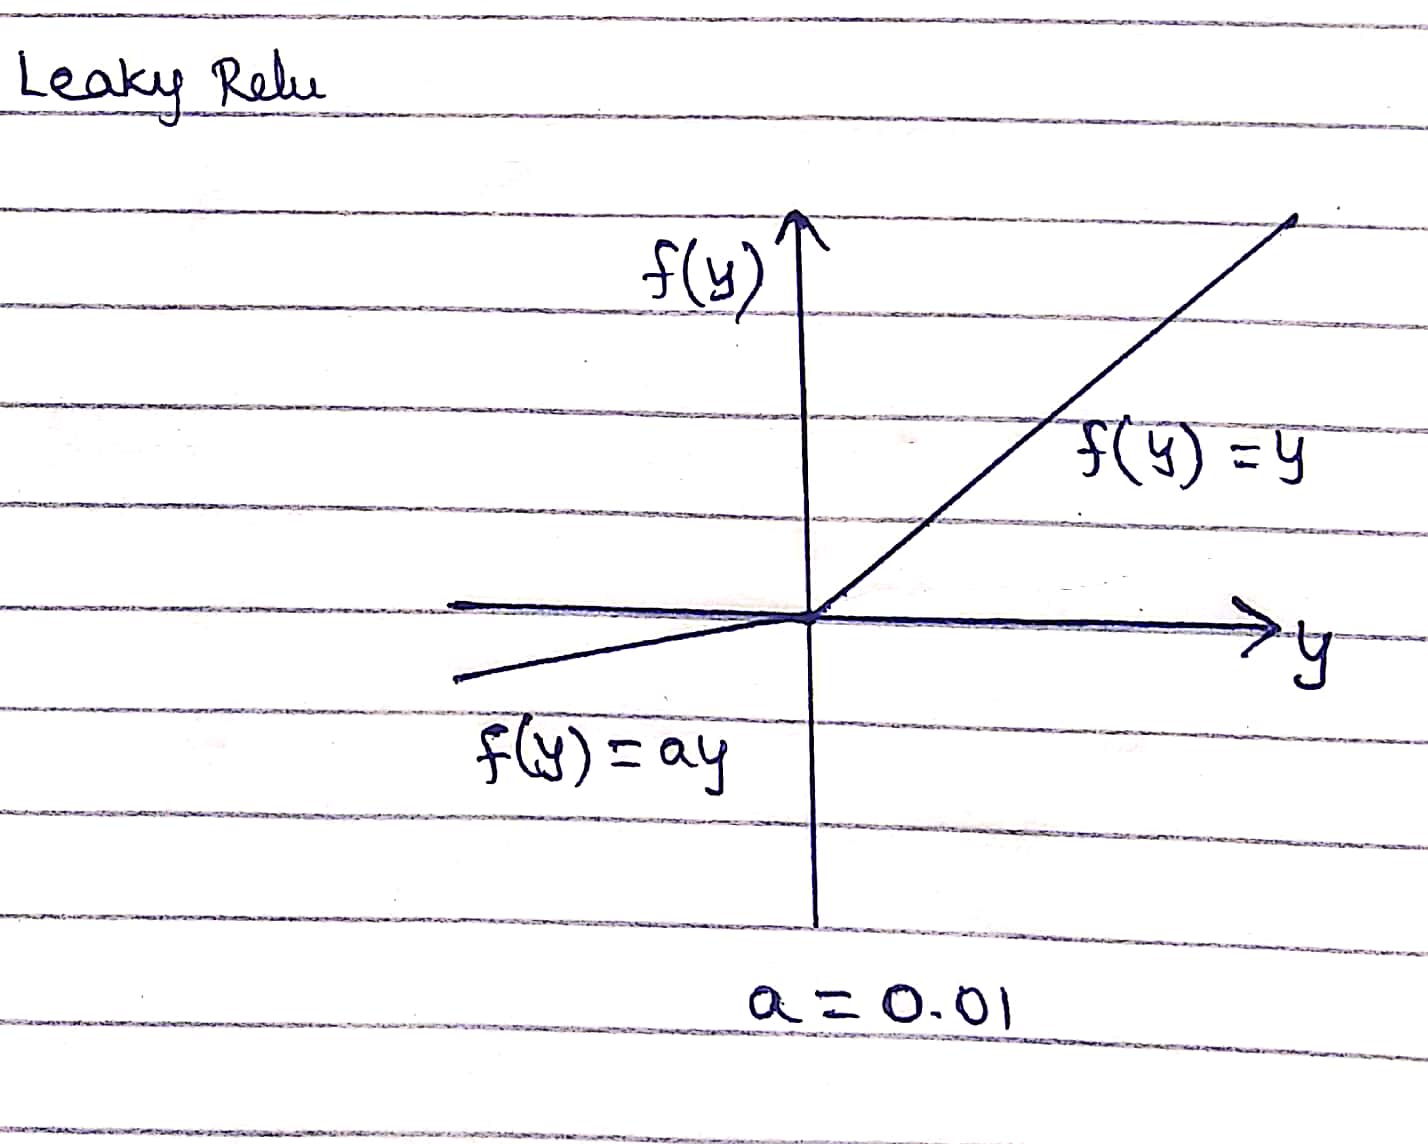 Leaky Relu
f(y)
f(y) = y
y
f(y) = ay
a = 0.01